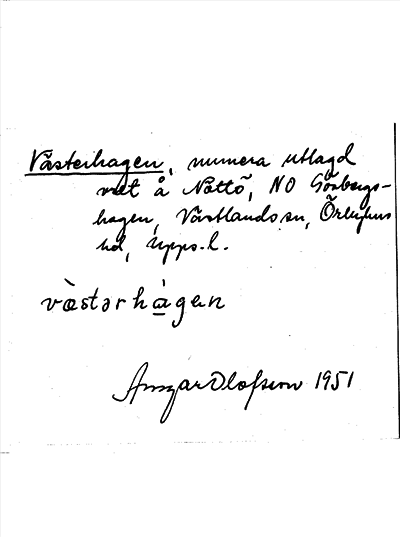 Västerhagen, numera utlagd
väst å Nöttö, NO Gåsbergs-
hagen, Västlands sn, Örbyhus
hd, Upps. l.
västərhàgen
Ansgar Olofsson 1951